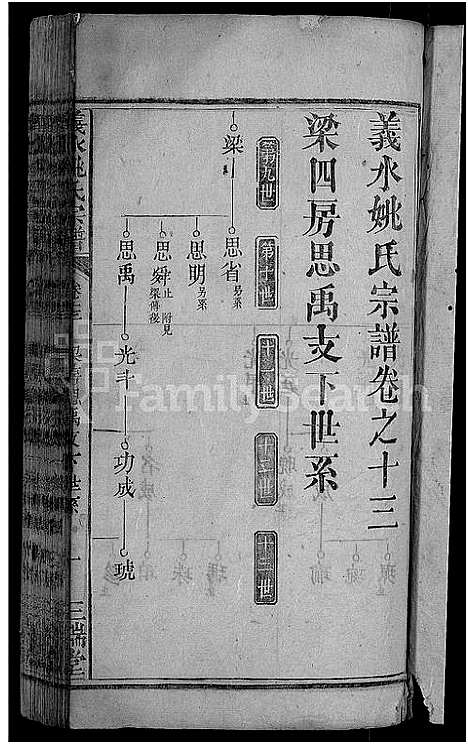 義水姚氏宗譜卷之十三
梁四房思禹支下世系
第九世
第十世
十一世
十二世
十三世
梁
思省 另系
思明 另系
思舜 止 附見梁傳後
思禹
光斗
功成
琥
義水姚氏宗譜
三瑞堂
FamilySearch